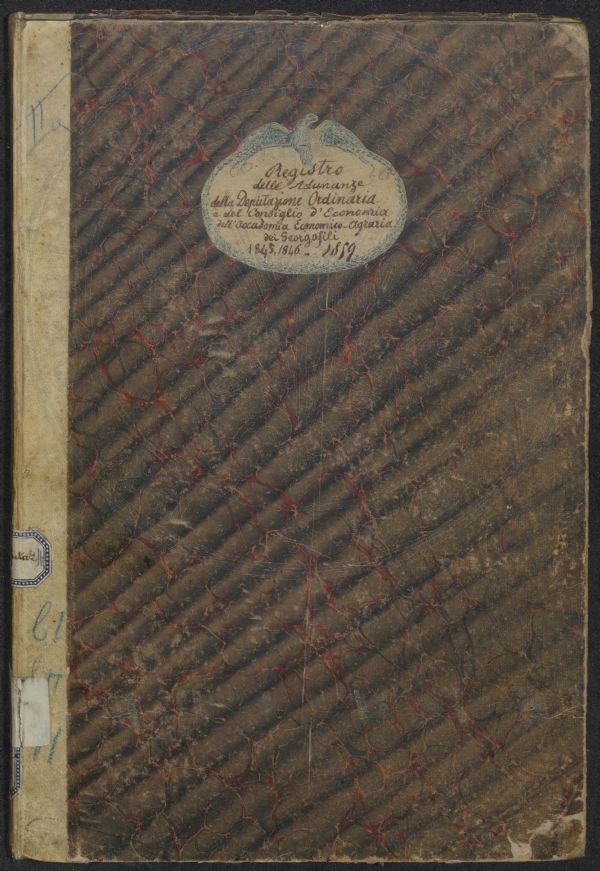 Registro
delle Adunanze
della Deputazione Ordinaria
e del Consiglio d'Economia
dell'Accademia Economico-Agraria
dei Georgofili
1845. 1846 - 1859
IIa